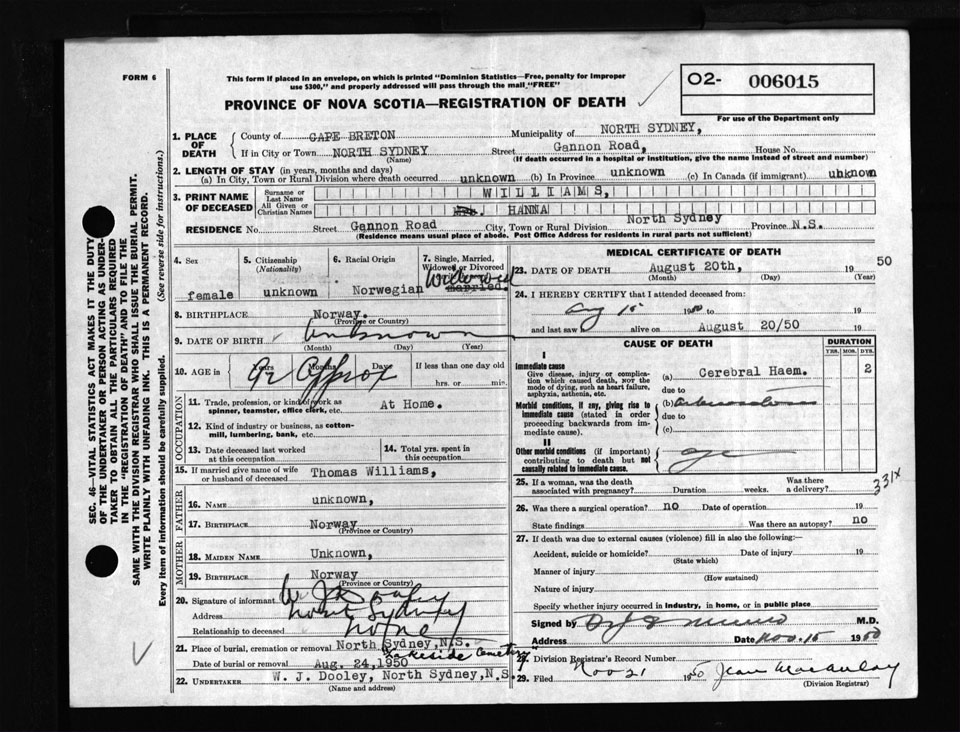 FORM 6
This form if placed in an envelope, on which is printed "Dominion Statistics—Free, penalty for improper
use $300," and properly addressed will pass through the mail "FREE"
PROVINCE OF NOVA SCOTIA—REGISTRATION OF DEATH
02- 006015
For use of the Department only
1. PLACE OF DEATH
County of CAPE BRETON Municipality of NORTH SYDNEY,
If in City or Town NORTH SYDNEY Street Gannon Road, House No.
(Name) (If death occurred in a hospital or institution, give the name instead of street and number)
2. LENGTH OF STAY (in years, months and days)
(a) In City, Town or Rural Division where death occurred unknown (b) In Province unknown (c) In Canada (if immigrant) uhknown
3. PRINT NAME OF DECEASED
Surname or Last Name WILLIAMS,
All Given or Christian Names HANNA
RESIDENCE No. Street Gannon Road City, Town or Rural Division North Sydney Province N.S.
(Residence means usual place of abode. Post Office Address for residents in rural parts not sufficient)
4. Sex female
5. Citizenship (Nationality) unknown
6. Racial Origin Norwegian
7. Single, Married, Widowed or Divorced Widowed married.
8. BIRTHPLACE Norway.
(Province or Country)
9. DATE OF BIRTH Unknown
(Month) (Day) (Year)
10. AGE in Years Months Days 92 Approx If less than one day old
hrs. or min.
OCCUPATION
11. Trade, profession, or kind of work as
spinner, teamster, office clerk, etc. At Home.
12. Kind of industry or business, as cotton-
mill, lumbering, bank, etc.
13. Date deceased last worked
at this occupation
14. Total yrs. spent in
this occupation
15. If married give name of wife
or husband of deceased Thomas Williams,
FATHER
16. NAME unknown,
17. BIRTHPLACE Norway
(Province or Country)
MOTHER
18. MAIDEN NAME Unknown,
19. BIRTHPLACE Norway
(Province or Country)
20. Signature of informant W. J. Dooley
Address North Sydney
Relationship to deceased None
21. Place of burial, cremation or removal North Sydney, N.S.
Lakeside Cemetery
Date of burial or removal Aug. 24,1950
22. UNDERTAKER W. J. Dooley, North Sydney,N.S.
(Name and address)
MEDICAL CERTIFICATE OF DEATH
23. DATE OF DEATH August 20th, 19 50
(Month) (Day) (Year)
24. I HEREBY CERTIFY that I attended deceased from:
Aug 15 1950 to 19
and last saw alive on August 20/50 19
CAUSE OF DEATH
DURATION
YRS. MOS. DYS.
I
Immediate cause
Give disease, injury or complica-
tion which caused death, NOT the
mode of dying, such as heart failure,
asphyxia, asthenia, etc.
(a) Cerebral Haem. 2
due to
Morbid conditions, if any, giving rise to
immediate cause (stated in order
proceeding backwards from im-
mediate cause).
(b)
due to
(c)
II
Other morbid conditions (if important)
contributing to death but not
causally related to immediate cause.
age
25. If a woman, was the death
associated with pregnancy? Duration weeks. Was there
a delivery?
331X
26. Was there a surgical operation? no Date of operation. 19
State findings Was there an autopsy? no
27. If death was due to external causes (violence) fill in also the following:—
Accident, suicide or homicide? Date of injury 19
(State which)
Manner of injury
(How sustained)
Nature of injury
Specify whether injury occurred in industry, in home, or in public place
Signed by M.D.
Address Date Nov. 15 1950
28. Division Registrar's Record Number
29. Filed Nov 21 1950 Jean Macaulay
(Division Registrar)
SEC. 46—VITAL STATISTICS ACT MAKES IT THE DUTY
OF THE UNDERTAKER OR PERSON ACTING AS UNDER-
TAKER TO OBTAIN ALL THE PARTICULARS REQUIRED
IN THE "REGISTRATION OF DEATH" AND TO FILE THE
SAME WITH THE DIVISION REGISTRAR WHO SHALL ISSUE THE BURIAL PERMIT.
WRITE PLAINLY WITH UNFADING INK. THIS IS A PERMANENT RECORD.
Every item of information should be carefully supplied. (See reverse side for instructions.)